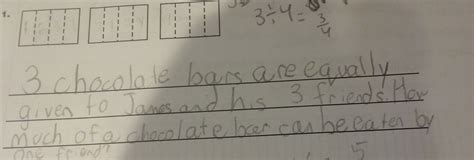 1.
3÷4=3/4
3 chocolate bars are equally
given to James and his 3 friends. How
much of a chocolate bar can be eaten by
one friend?
5